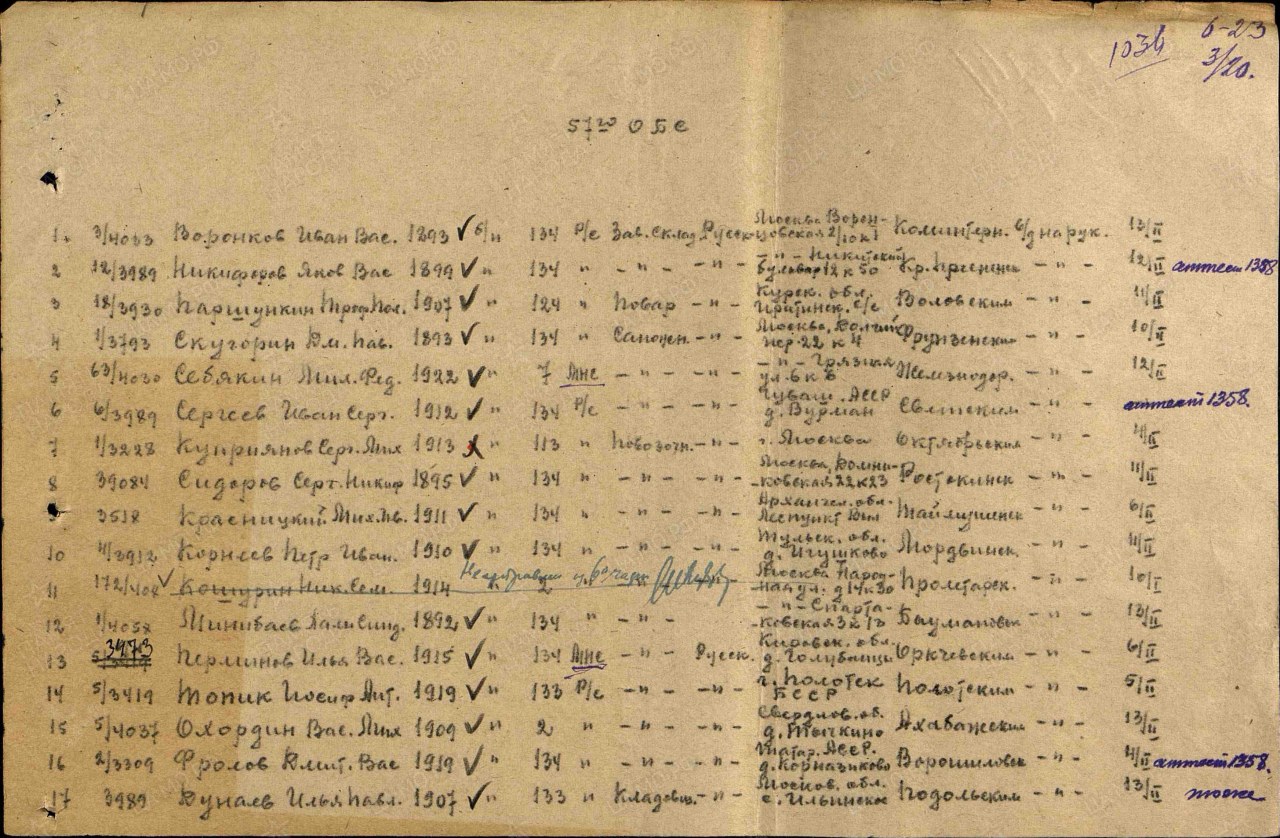 1034
6-23
3/20.
57го ОБС
1. 3/4033 Воронков Иван Вас. 1893 ✓ б/н 134 Р/с Зав. склад. Русск. Москва Ворон-цовская 2/10 к 1 Коминтерн. б/д на рук. 13/II
2 12/3989 Никифоров Яков Вас 1899 ✓ " 134 " - " - - " - - " - Никитский бульвар 12 к 50 Кр. - " - 12/II аттест 1358
3 18/3930 Паршункин Троф. 1907 ✓ " 124 " Повар - " - Курск. обл. с/с Воловским - " - 11/II
4 1/3793 Скугорин Дм. Пав. 1893 ✓ " 134 " Сапожн. - " - Москва, пер. 22 к 4 Фрунзенским - " - 10/II
5 63/4030 Себякин Мих. Фед. 1922 ✓ " 7 Мнс - " - - " - - " - Грязная ул. 6 к 6 Железнодор. - " - 12/II
6 6/3989 Сергеев Иван Серг. 1912 ✓ " 134 Р/с - " - - " - Чуваш. АССР д. Вурман - " - аттест 1358.
7 1/3228 Куприянов Серг. Мих 1913 " 113 " Повозочн. - " - г. Москва Октябрьским - " - 11/II
8 39084 Сидоров Серг. Никиф 1895 ✓ " 134 " - " - - " - Москва, Домни-ковская 22 к 23 Ростокинск - " - 11/II
9 3518 Красницкий Мих. Ив. 1911 ✓ " 134 " - " - - " - Архангел. обл. Леспункт - " - 6/II
10 11/3912 Корнеев Петр Иван. 1910 ✓ " 134 " - " - - " - Тульск. обл. д. Игушково Мордвинск. - " - 11/II
11 172/408 ✓ Кошурин Ник. Сем. 1914 " 2 Москва Народ-ная ул. д 14 к 30 Пролетарск. - " - 10/II
12 1/4058 Минибаев 1892 ✓ " 134 " - " - - " - Спарта-ковская 3 к 13 Баумановск - " - 13/II
13 3973 Перминов Илья Вас. 1915 ✓ " 134 Мнс - " - Русск. Кировск. обл. д. Оричевским - " - 6/II
14 5/3419 Топик Иосиф Ант. 1919 ✓ " 133 Р/с - " - - " - г. Полотск БССР Полотским - " - 5/II
15 5/4037 Охордин Вас. Мих 1909 ✓ " 2 " - " - - " - Свердлов. об. д. Тычкино - " - 13/II
16 2/3309 Фролов Дмит. Вас 1919 ✓ " 134 " - " - - " - Татар. АССР. д. Ворошиловск - " - 4/II аттест 1358.
17 3989 Дунаев Илья Павл. 1907 ✓ " 133 " Кладовщ. - " - Москов. обл. с. Ильинское Подольским - " - 13/II тоже